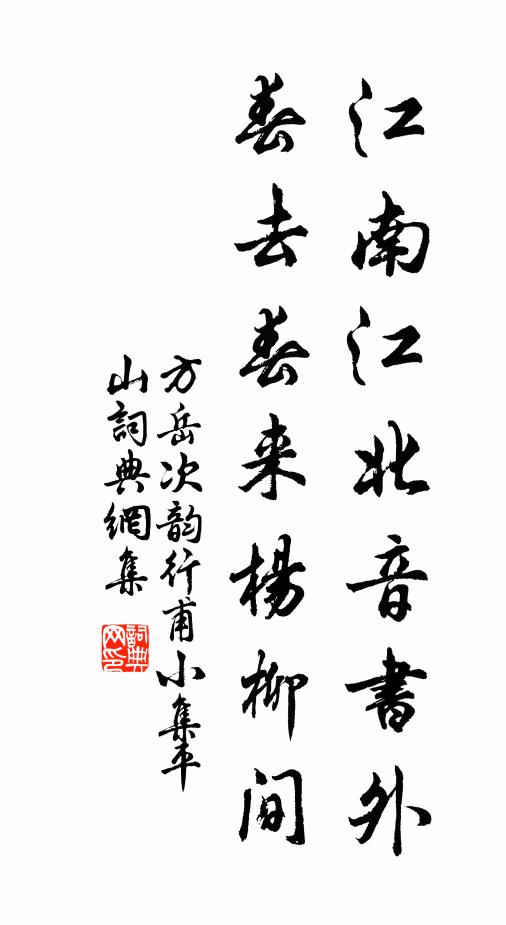 江南江北音書外
春去春来楊柳间
方岳次韵行甫小集平
山詞典網集
詞典
网印